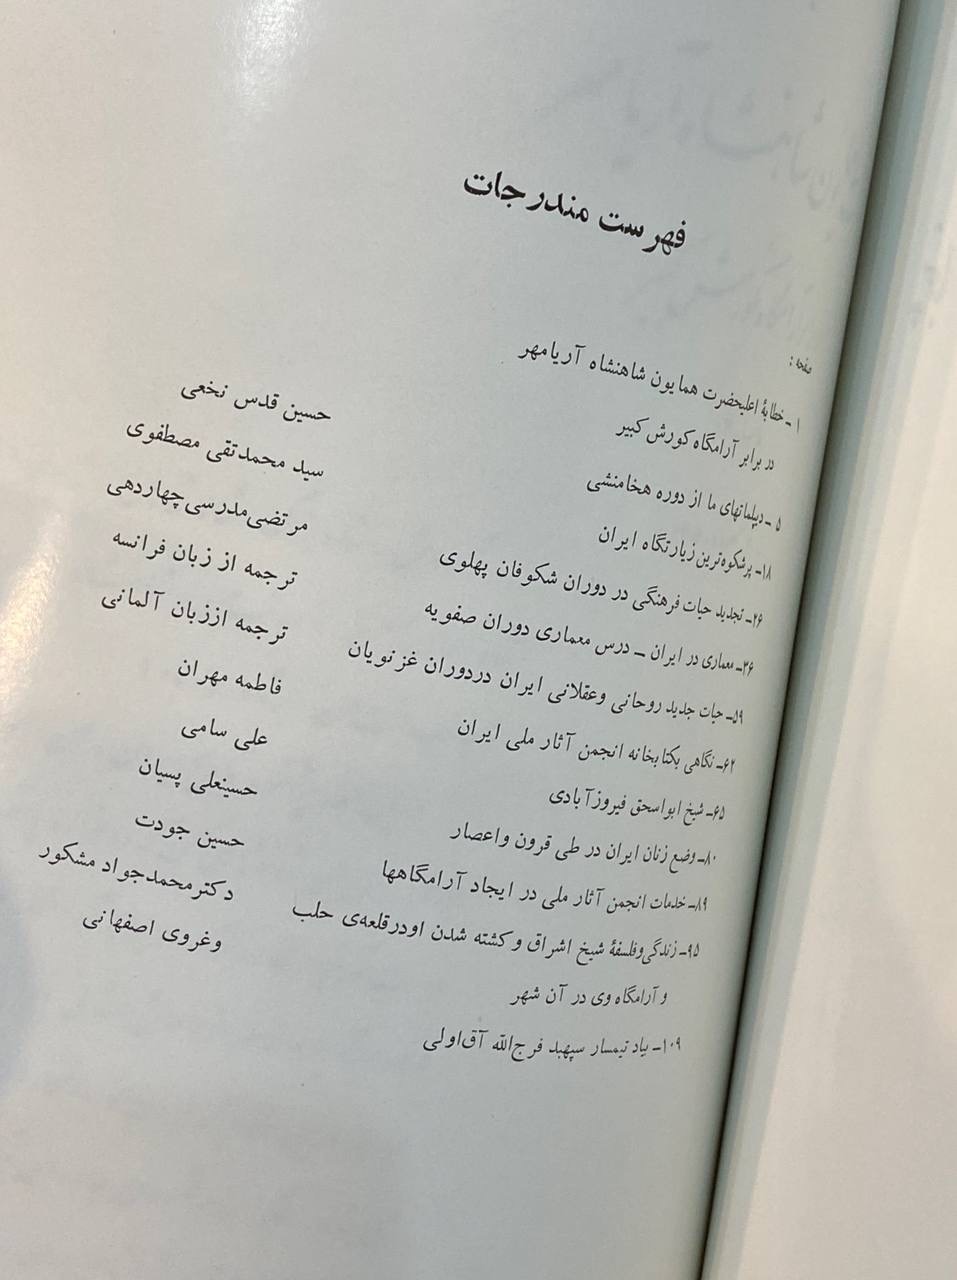 فهرست مندرجات
صفحه :
۱ ـ خطابهٔ اعلیحضرت همایون شاهنشاه آریامهر
در برابر آرامگاه کورش کبیر
۵ ـ دیپلماتهای ما از دوره هخامنشی حسین قدس نخعی
۱۸ـ پرشکوه‌ترین زیارتگاه ایران سید محمدتقی مصطفوی
۲۶ـ تجدید حیات فرهنگی در دوران شکوفان پهلوی مرتضی مدرسی چهاردهی
۳۶ـ معماری در ایران ـ درس معماری دوران صفویه ترجمه از زبان فرانسه
۵۹ـ حیات جدید روحانی وعقلانی ایران دردوران غزنویان ترجمه اززبان آلمانی
۶۲ـ نگاهی بکتابخانه انجمن آثار ملی ایران فاطمه مهران
۶۵ـ شیخ ابواسحق فیروزآبادی علی سامی
۸۰ـ وضع زنان ایران در طی قرون واعصار حسینعلی پسیان
۸۹ـ خدمات انجمن آثار ملی در ایجاد آرامگاهها حسین جودت
۹۵ـ زندگی وفلسفهٔ شیخ اشراق وکشته شدن اودرقلعه‌ی حلب دکترمحمدجواد مشکور
و آرامگاه وی در آن شهر وغروی اصفهانی
۱۰۹ـ بیاد تیمسار سپهبد فرج‌الله آق‌اولی